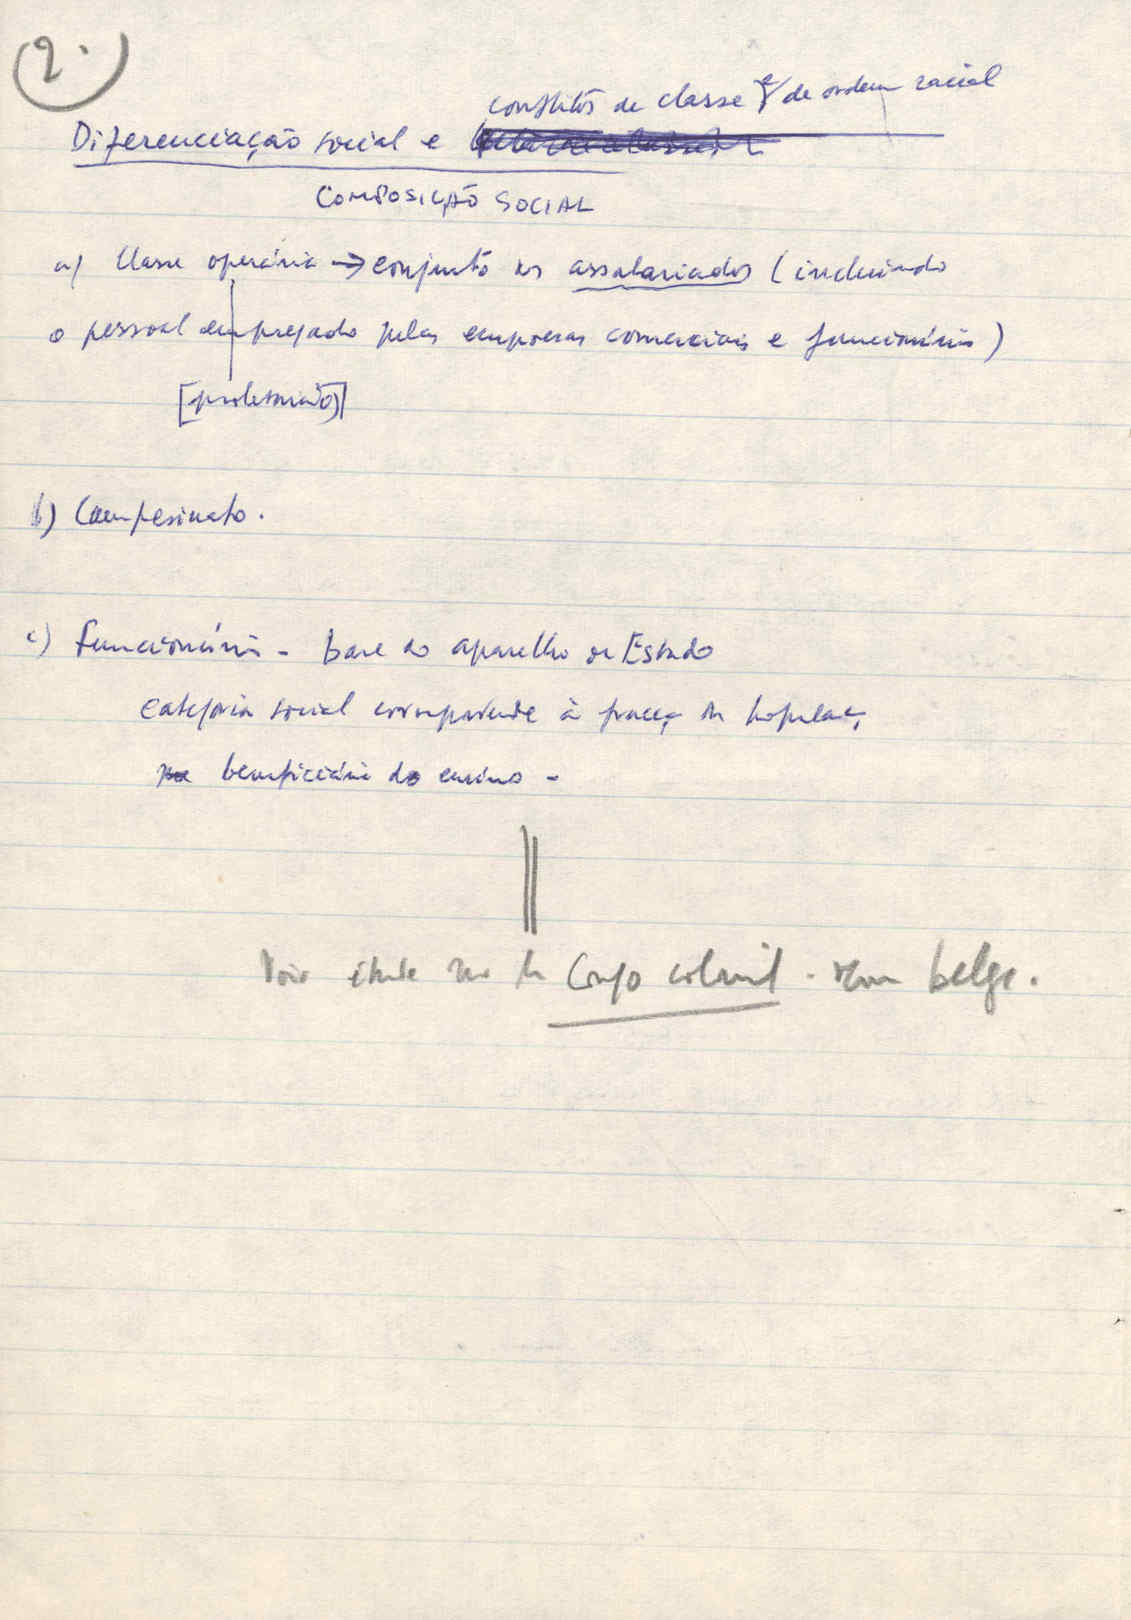 2.
conflitos de classe e/ de ordem racial
Diferenciação social e
COMPOSIÇÃO SOCIAL
a) Classe operária → conjunto dos assalariados (incluindo
o pessoal empregado pelas empresas comerciais e funcionários)
[proletariado]
b) Campesinato.
c) Funcionários - base do aparelho de Estado
categoria social correspondente à fracç. da populaç.
beneficiária do ensino -
Voir étude sur le Congo colonial - revue belge.